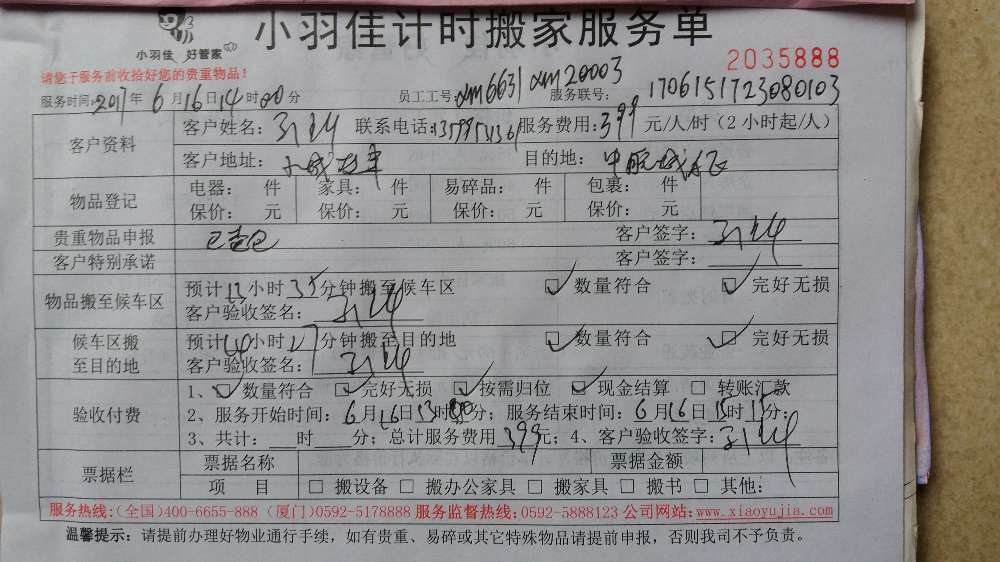 小羽佳 好管家
小羽佳计时搬家服务单
2035888
请您于服务前收拾好您的贵重物品!
服务时间:2017年6月16日14时00分 员工工号: xm6631 xm20003 服务联号: 1706151723080103
客户资料
客户姓名: 联系电话: 服务费用:399元/人/时(2小时起/人)
客户地址: 目的地:
物品登记
电器: 件 家具: 件 易碎品: 件 包裹: 件
保价: 元 保价: 元 保价: 元 保价: 元
贵重物品申报 已查包 客户签字:
客户特别承诺 客户签字:
物品搬至候车区
预计13小时35分钟搬至候车区 ☑数量符合 ☑完好无损
客户验收签名:
候车区搬至目的地
预计 小时 分钟搬至目的地 ☑数量符合 ☑完好无损
客户验收签名:
验收付费
1、☑数量符合 ☑完好无损 ☑按需归位 ☑现金结算 □转账汇款
2、服务开始时间:6月16日13时00分;服务结束时间:6月16日15时15分;
3、共计: 时 分;总计服务费用399元;4、客户验收签字:
票据栏
票据名称 票据金额
项 目 □搬设备 □搬办公家具 □搬家具 □搬书 □其他:
服务热线:(全国)400-6655-888 (厦门)0592-5178888 服务监督热线:0592-5888123 公司网站:www.xiaoyujia.com
温馨提示: 请提前办理好物业通行手续,如有贵重、易碎或其它特殊物品请提前申报,否则我司不予负责。